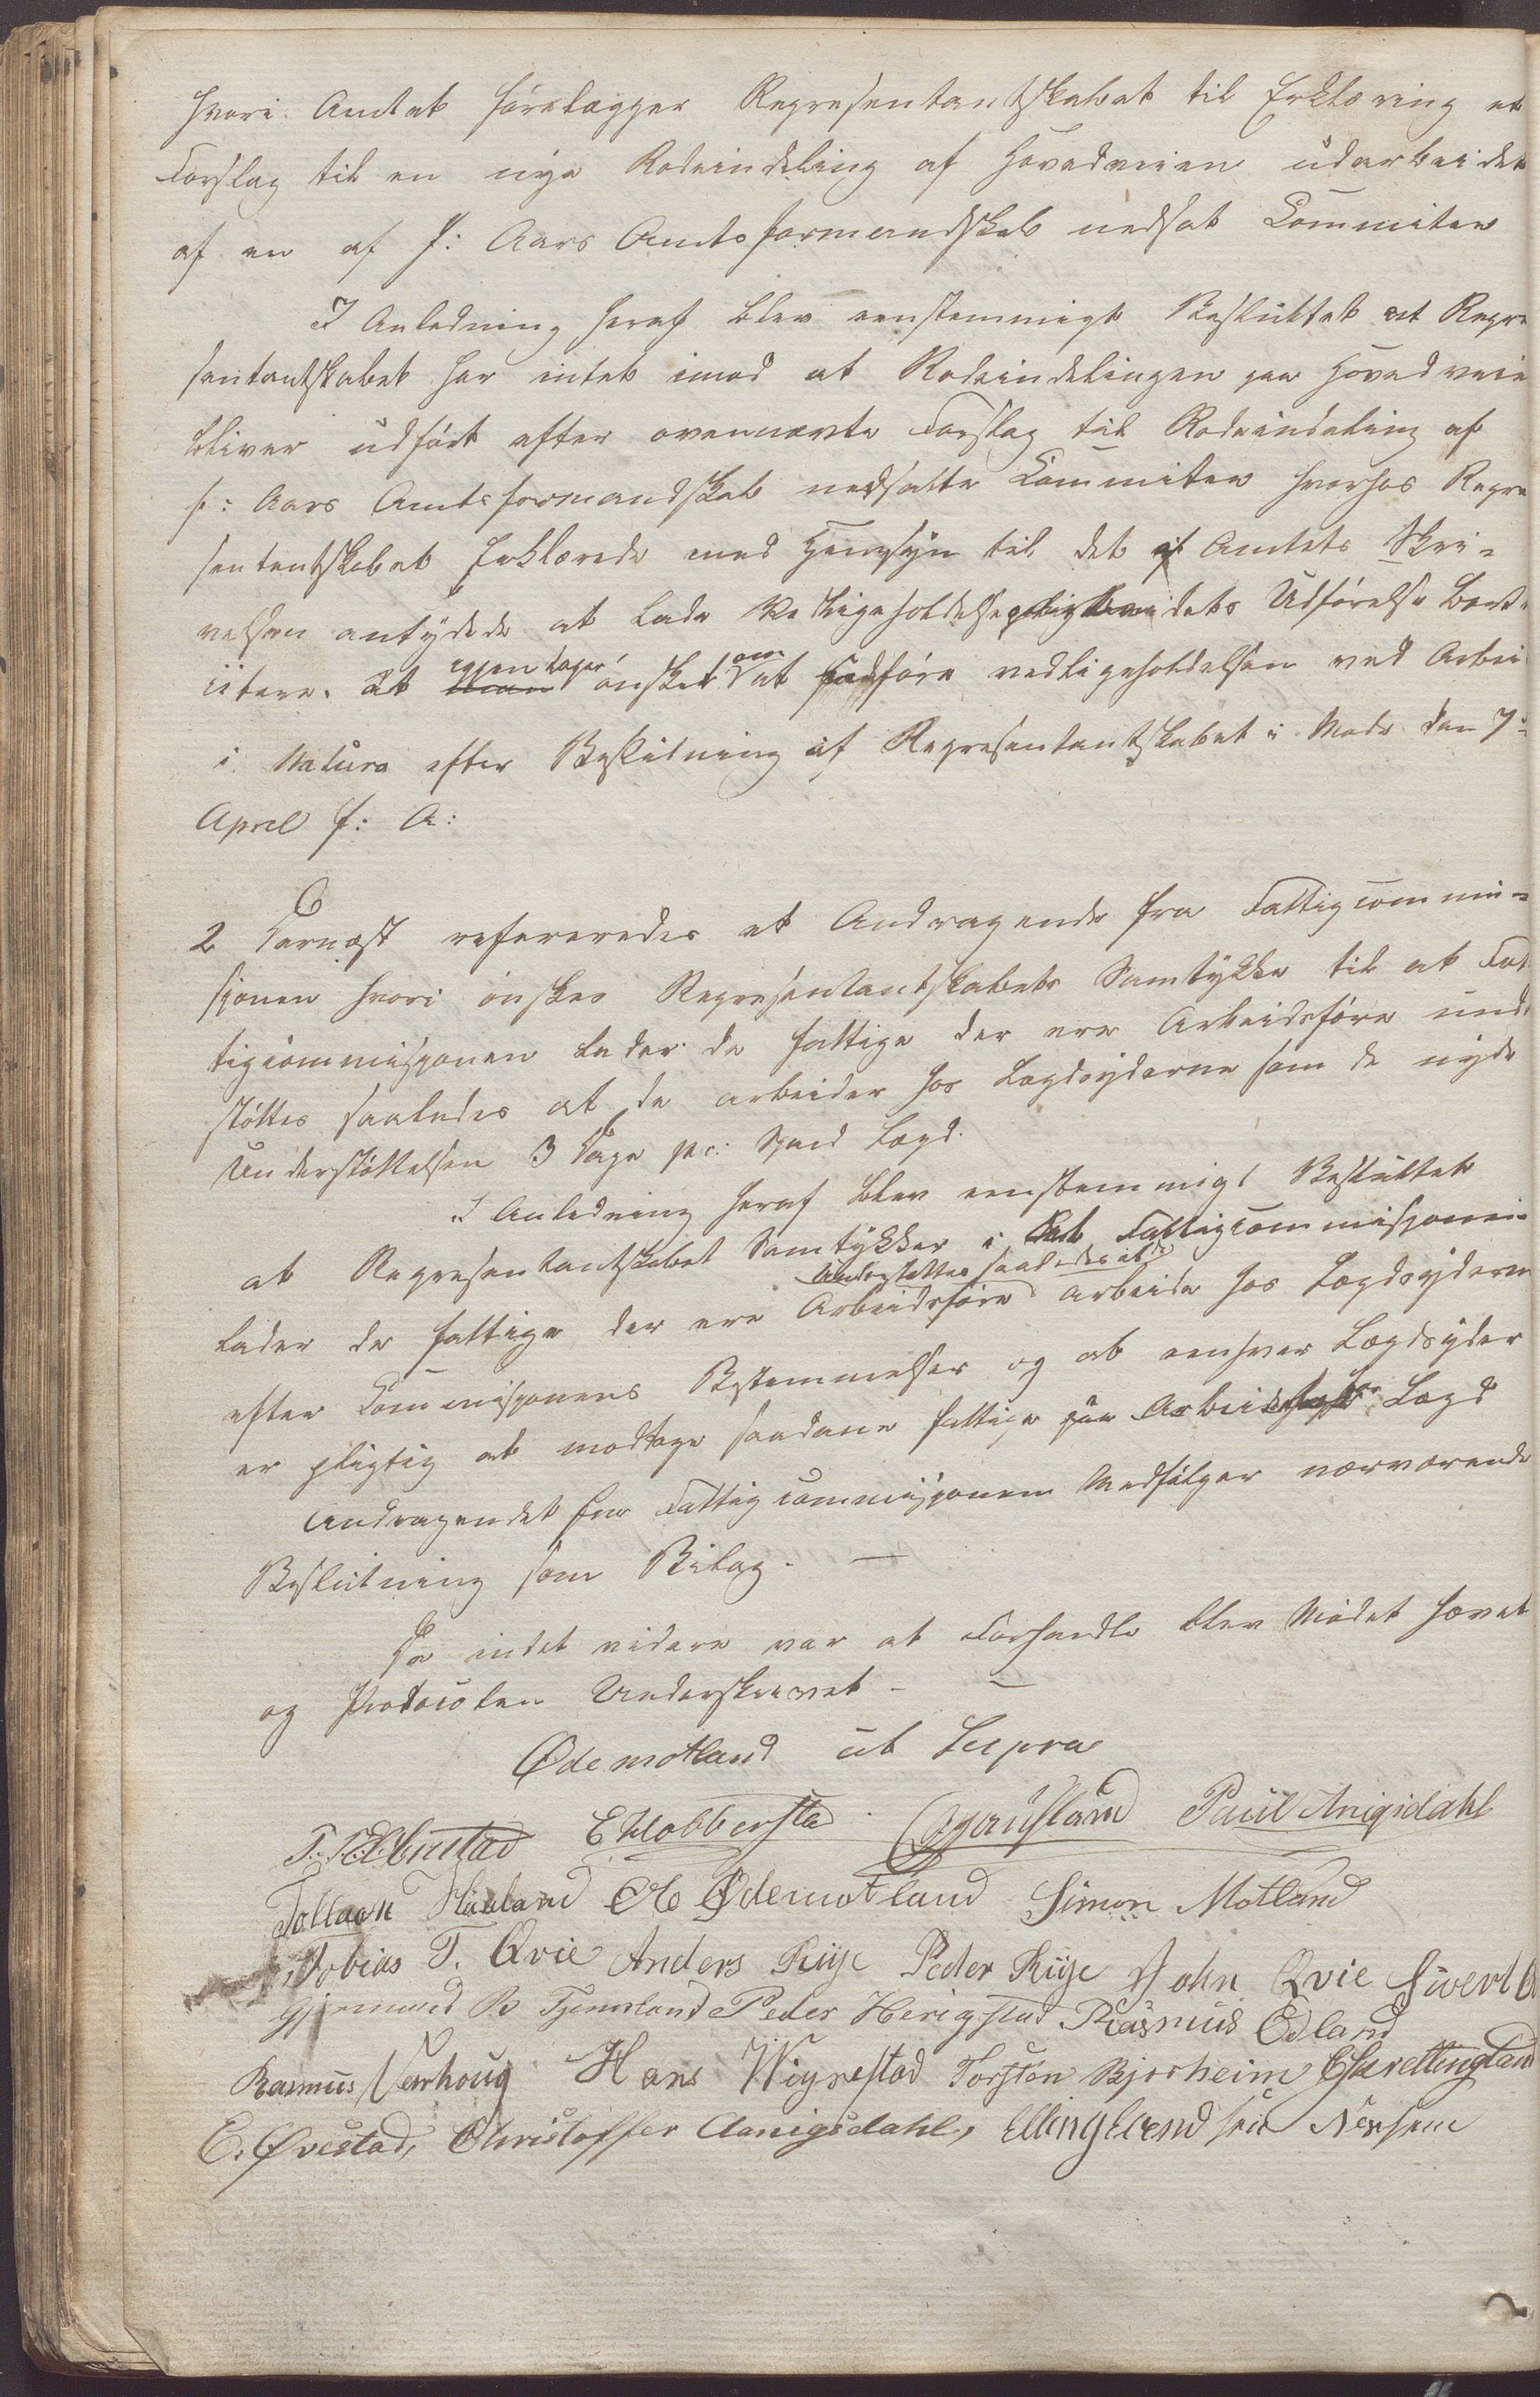 hvori Amtet forelægger Representantskabet til Erklæring et
Forslag til en nye Rodeindeling af Hovedveien udarbeidet
af en af f: Aars Amtsformandskab nedsat Commitee
I Anledning heraf blev eenstemmigt Besluttet at Repre
sentantskabet har intet imod at Rodeindelingen paa Hovedveie
bliver udført efter ovennævte Forslag til Rodeindeling af
f: Aars Amtsformandskab nedsatte Commitee hvorhos Repre
sentantskabet Erklærede med Hensyn til det af Amtets Skri-
velsen antydede at lade Vedligeholdelsepligten dets Udførelse bort-
at man igjentager ønsket om at udføre vedligeholdelsen ved Arbei
i Natura efter Beslutning af Representantskabet i Møde den 7de
April f: A:
2 Dernæst refereredes et Andragende fra Fattigcommi-
sjonen hvori ønskes Representantskabets Samtykke til at Fat
tigcommisjonen lader de fattige der ere Arbeidsføre unde
støttes saaledes at de arbeider hos Lægdsyderne som de nyde
Understøttelsen 3 Dage pr: Spand Lægd.
I Anledning heraf blev eenstemmigt Besluttet
at Representantskabet Samtykker i at Fattigcommisjonen
understøttes saaledes at de
lader de fattige der ere Arbeidsføre arbeide hos Lægdsyderne
efter Commisjonens Bestemmelser og at eenhver Lægdsyder
er pligtig at modtage saadane fattige paa Lægd
Andragendet fra Fattigcommisjonen Medfølger nærværende
Beslutning som Bilag. —
Da intet videre var at Forhandle blev Mødet hævet
og Protocolen Underskrevet —
Ødemotland ut Supra
Paul Anigsdahl
Tollaen Haaland Ole Ødemotland Simon Motland
Tobias T. Qvie Anders Riije Peder Riije John Qvie Sivert
B Tjemsland Peder Herigstad Rasmus Ødland
Rasmus Varhoug Hans Wigrestad Torsten Bjorheim E Skrettingland
E. Øvestad, Christoffer Aanigsdahl, Elling Nærheim